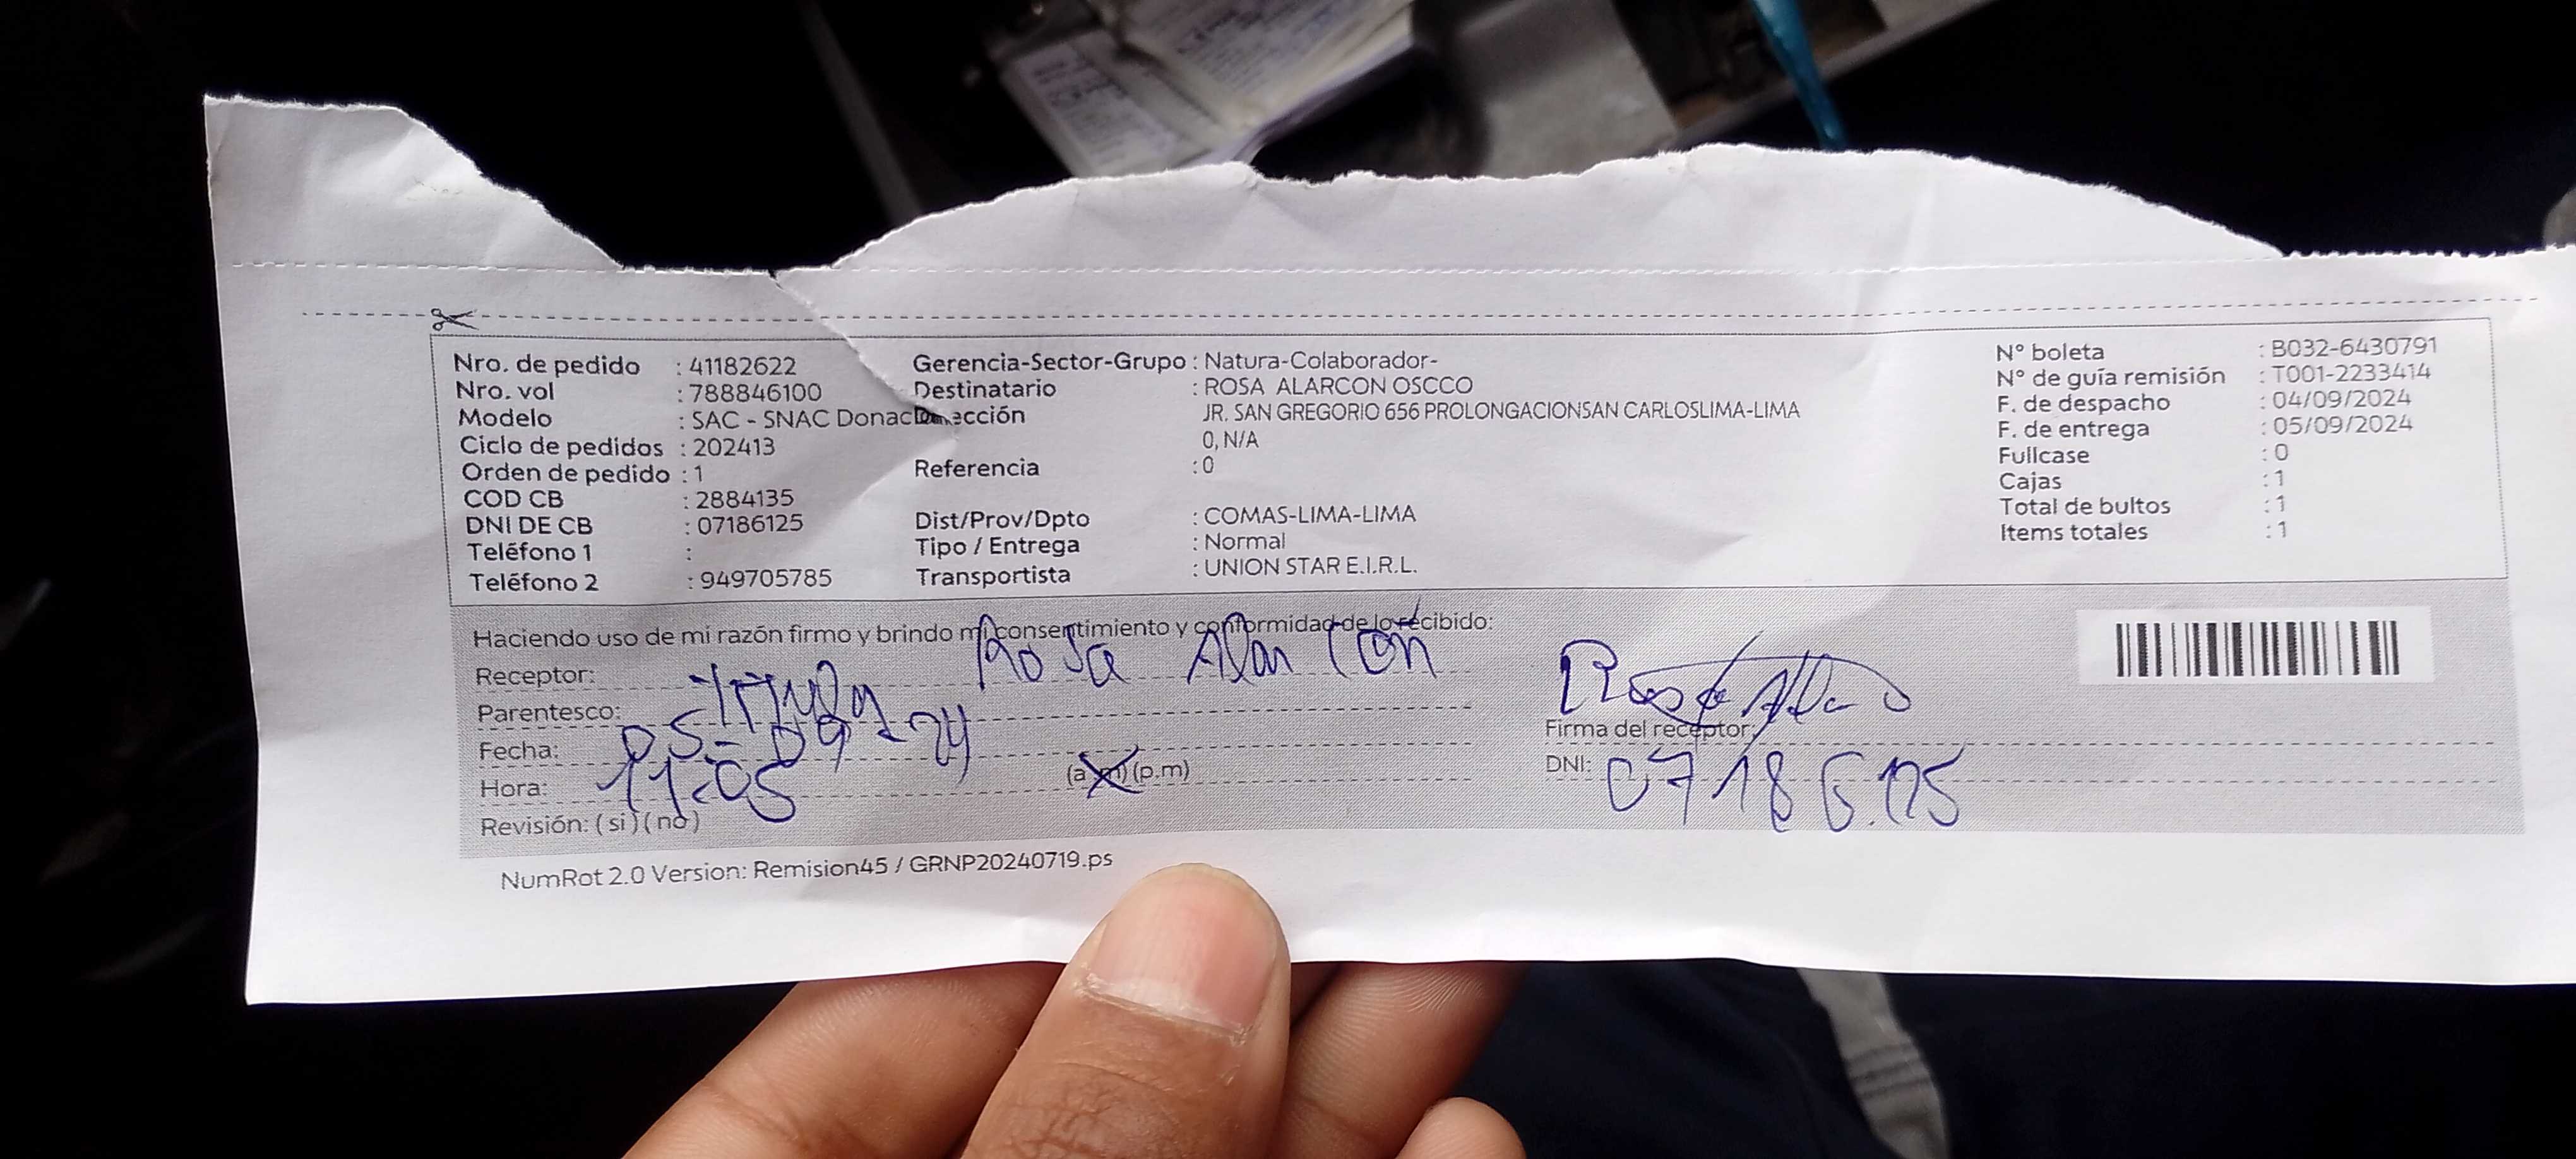 Nro. de pedido : 41182622
Nro. vol : 788846100
Modelo : SAC - SNAC Donac
Ciclo de pedidos : 202413
Orden de pedido : 1
COD CB : 2884135
DNI DE CB : 07186125
Teléfono 1 :
Teléfono 2 : 949705785
Gerencia-Sector-Grupo : Natura-Colaborador-
Destinatario : ROSA ALARCON OSCCO
Dirección JR. SAN GREGORIO 656 PROLONGACIONSAN CARLOSLIMA-LIMA
0, N/A
Referencia : 0
Dist/Prov/Dpto : COMAS-LIMA-LIMA
Tipo / Entrega : Normal
Transportista : UNION STAR E.I.R.L.
N° boleta : B032-6430791
N° de guía remisión : T001-2233414
F. de despacho : 04/09/2024
F. de entrega : 05/09/2024
Fullcase : 0
Cajas : 1
Total de bultos : 1
Items totales : 1
Haciendo uso de mi razón firmo y brindo mi consentimiento y conformidad de lo recibido:
Receptor: Rosa Alarcon
Parentesco: Titular
Fecha: 05-09-24
Hora: 11:05 (a.m) (p.m)
Revisión: (si) (no)
Firma del receptor:
DNI: 07186125
NumRot 2.0 Version: Remision45 / GRNP20240719.ps